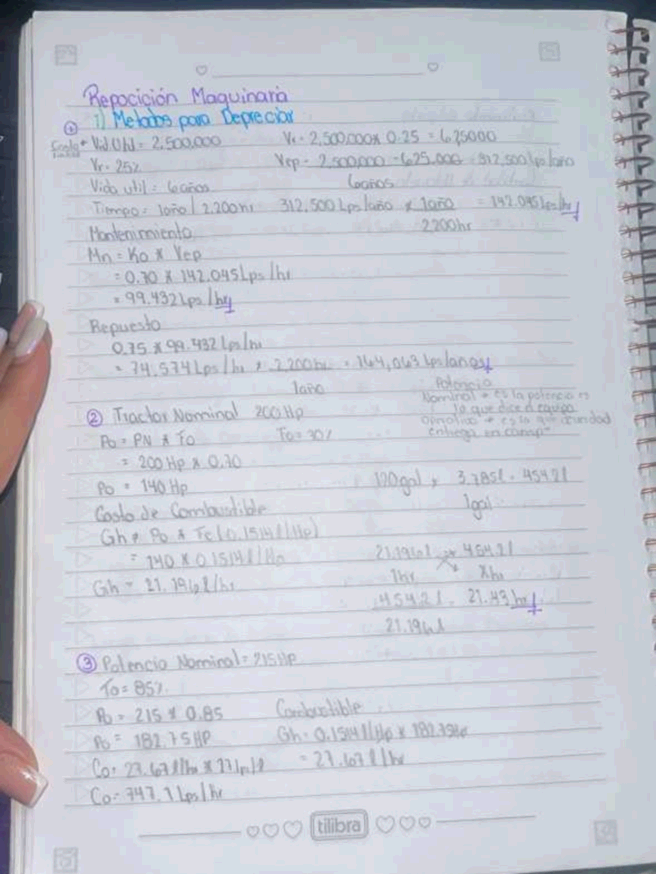 Repocición Maquinaria
1) Metodos para Depreciar
① Vid. Util = 2,500,000 Vr = 2,500,000 x 0.25 = 625000
Vr = 25% Vep = 2,500,000 - 625,000 = 312,500 lps/año
Vida util = 6 años 6 años
Tiempo = 1año / 2,200hr 312,500 Lps/año x 1año = 142.045 Lps/hr
Mantenimiento 2200hr
Mn = Ko x Vep
= 0.70 x 142.045 Lps/hr
= 99.432 Lps/hr
Repuesto
0.75 x 99.432 Lps/hr
= 74.574 Lps/hr x 2,200 hr = 164,063 Lps/años
1año
Potencia
Nominal → es la potencia
lo que dice el equipo
② Tractor Nominal 200 Hp
entrega en campo
Po = PN x To To = 70%
= 200 Hp x 0.70
Po = 140 Hp 120gal x 3.785l = 454.2l
1gal
Costo de Combustible
Gh = Po x Fc (0.1514 l/Hp)
= 140 x 0.1514 l/Hp 21.196l → 454.2l
Gh = 21.196 l/hr 1hr Xhr
454.2l = 21.43 hr
21.196l
③ Potencia Nominal = 215 Hp
To = 85%
Po = 215 x 0.85 Combustible
Po = 182.75 HP Gh = 0.1514 l/Hp x 182.75Hp
Co = 27.67 l/hr x 27 lp/l = 27.67 l/hr
Co = 747.1 Lps/hr
tilibra